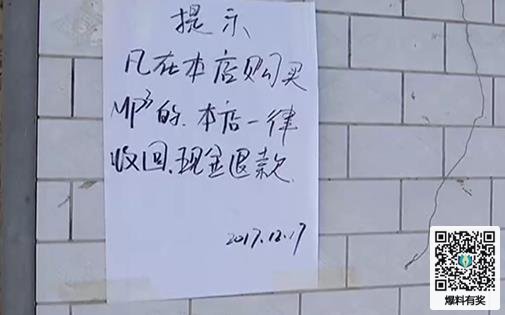 提示
凡在本店购买
MP3的.本店一律
收回.现金退款
2017.12.17
爆料有奖